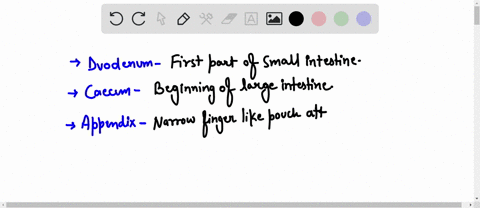 → Duodenum - First part of Small intestine.
→ Caecum - Beginning of large intestine
→ Appendix - Narrow finger like pouch att